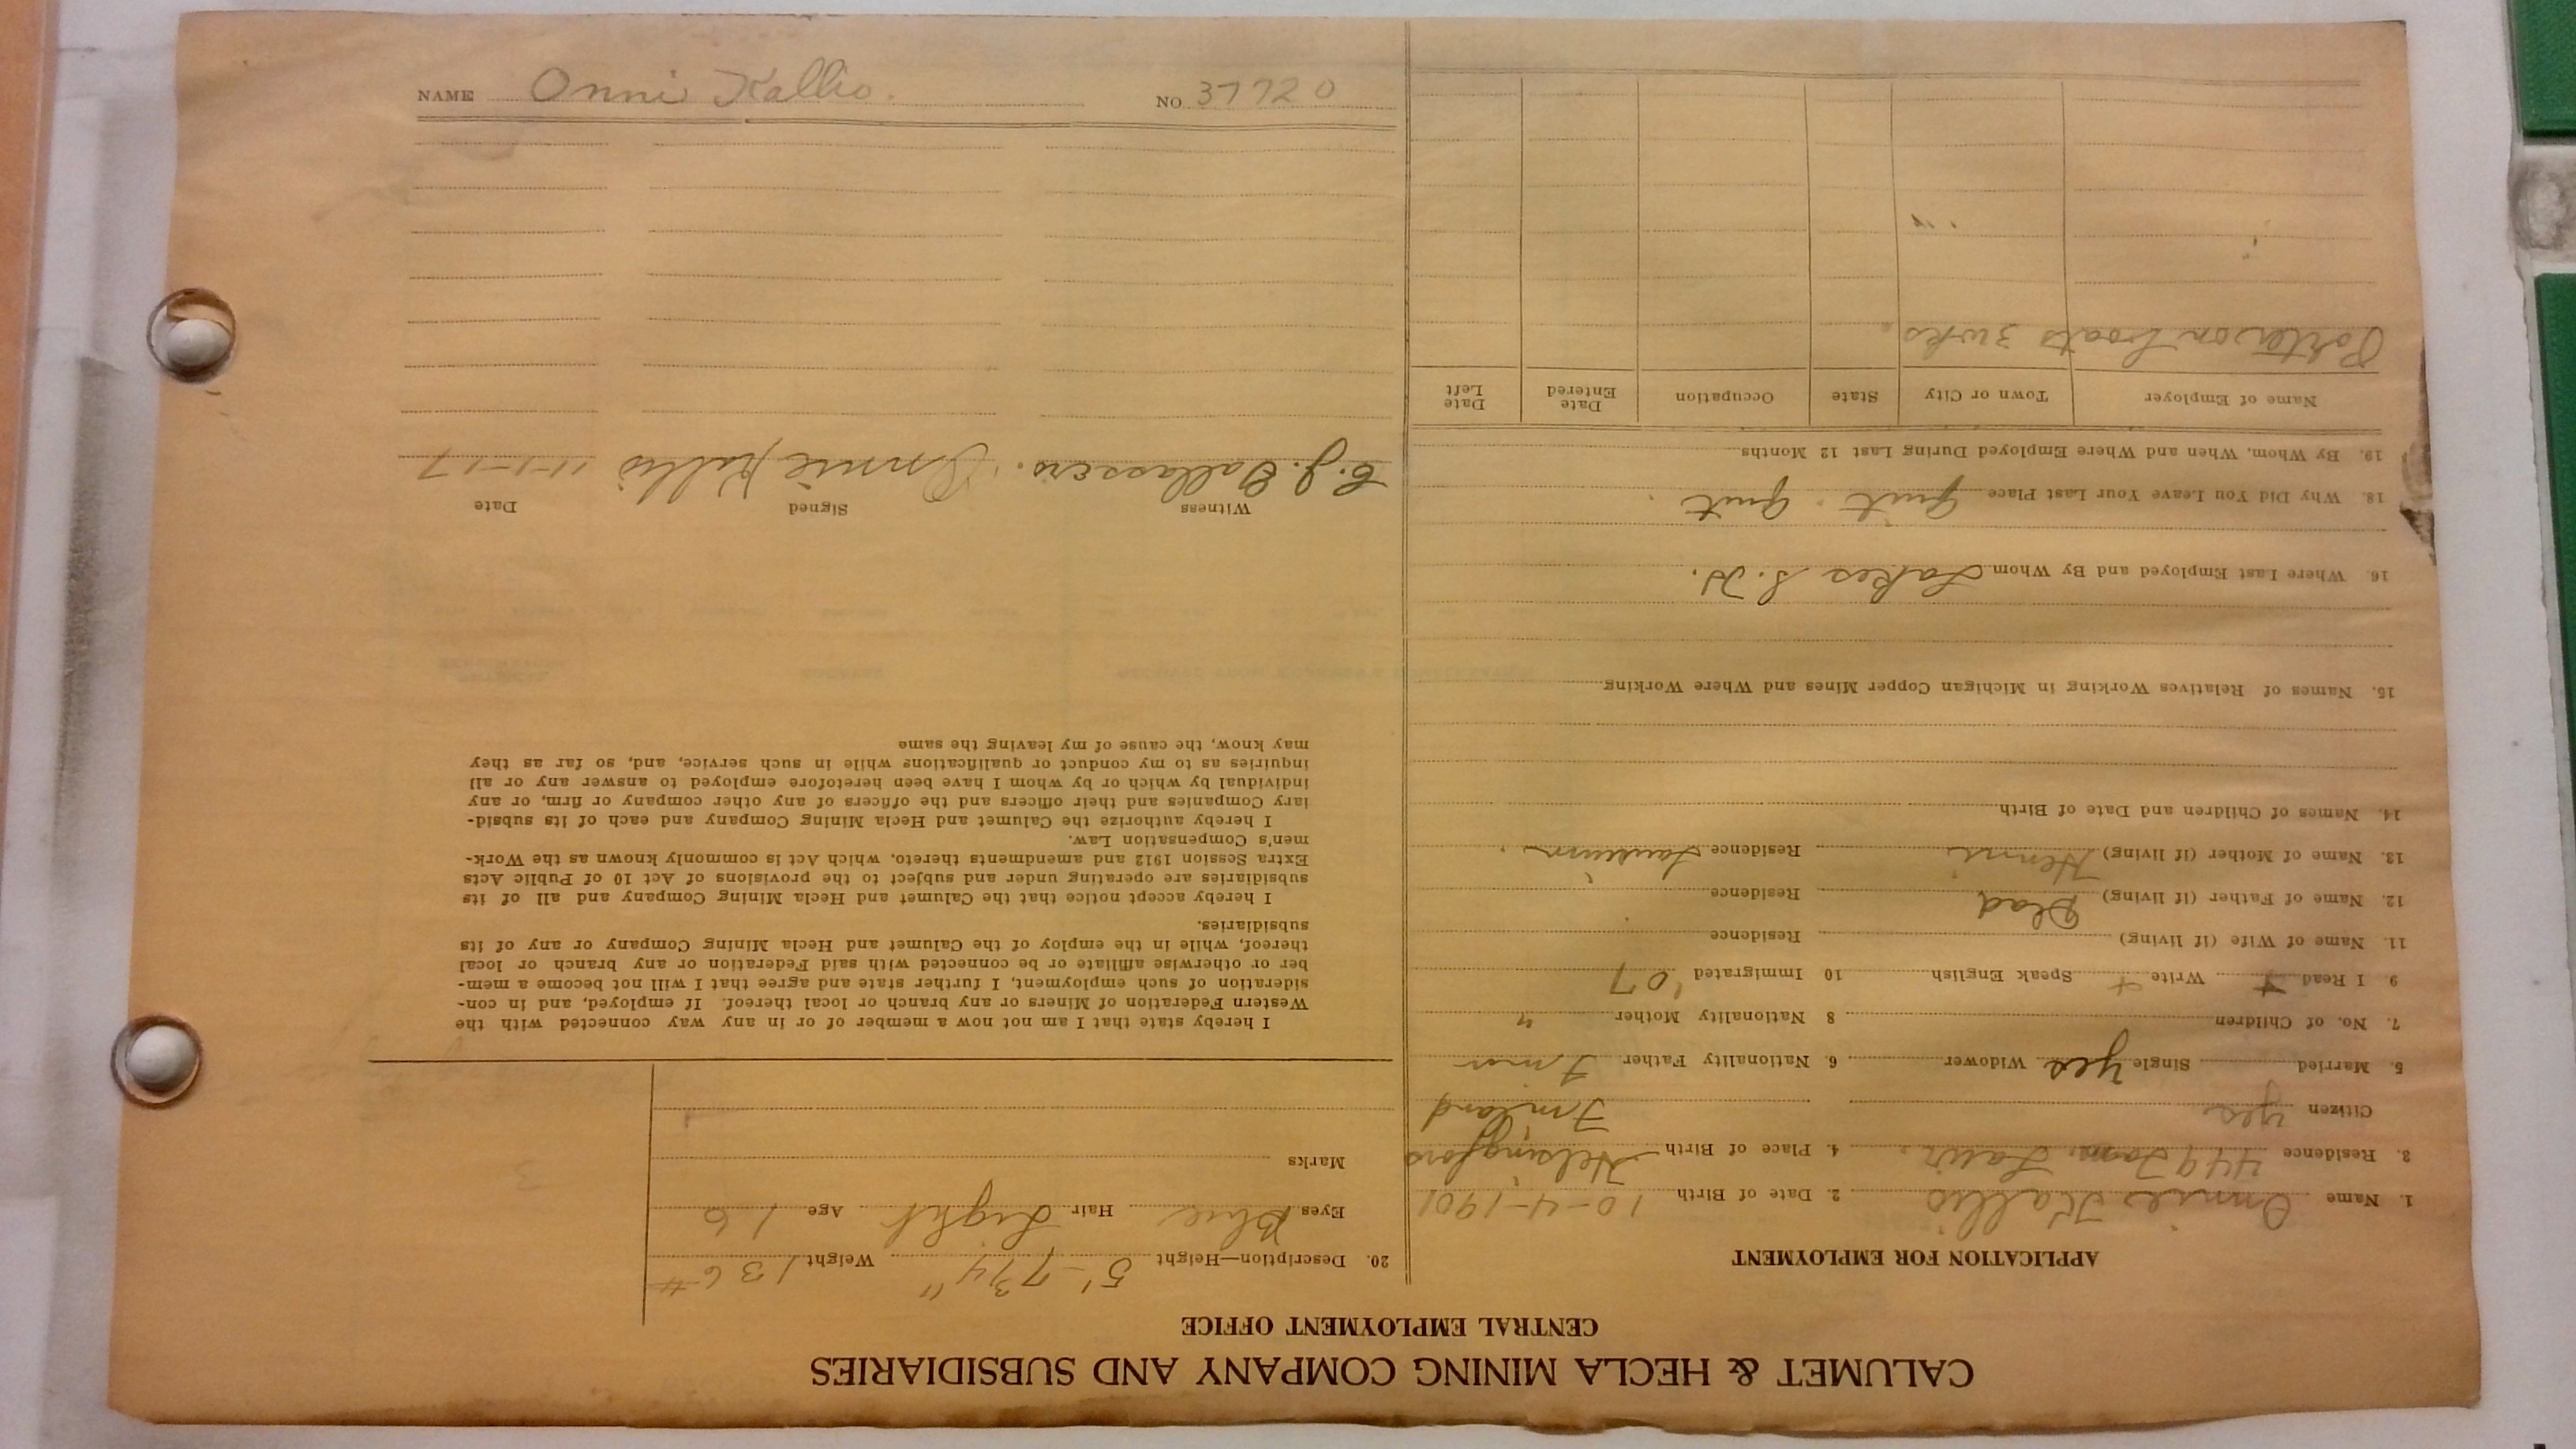 CALUMET & HECLA MINING COMPANY AND SUBSIDIARIES
CENTRAL EMPLOYMENT OFFICE
APPLICATION FOR EMPLOYMENT
1. Name Onnie Kallio 2. Date of Birth 10-4-1901
3. Residence 449 Tam. Laur. 4. Place of Birth Helsingfors
Citizen yes Finland
5. Married Single yes Widower 6. Nationality Father Finn
7. No. of Children 8 Nationality Mother "
9 I Read + Write + Speak English 10 Immigrated '07
11. Name of Wife (if living) Residence
12. Name of Father (if living) Dead Residence
13. Name of Mother (if living) Residence Laurium
14. Names of Children and Date of Birth
15. Names of Relatives Working in Michigan Copper Mines and Where Working
16. Where Last Employed and By Whom Lakes
18. Why Did You Leave Your Last Place quit quit
19. By Whom, When and Where Employed During Last 12 Months
Name of Employer Town or City State Occupation Date Entered Date Left
Porter on boats 3 wks.
20. Description—Height 5'-7 3/4" Weight 136 #
Eyes Blue Hair Light Age 16
Marks
I hereby state that I am not now a member of or in any way connected with the
Western Federation of Miners or any branch or local thereof. If employed, and in con-
sideration of such employment, I further state and agree that I will not become a mem-
ber or otherwise affiliate or be connected with said Federation or any branch or local
thereof, while in the employ of the Calumet and Hecla Mining Company or any of its
subsidiaries.
I hereby accept notice that the Calumet and Hecla Mining Company and all of its
subsidiaries are operating under and subject to the provisions of Act 10 of Public Acts
Extra Session 1912 and amendments thereto, which Act is commonly known as the Work-
men's Compensation Law.
I hereby authorize the Calumet and Hecla Mining Company and each of its subsid-
iary Companies and their officers and the officers of any other company or firm, or any
individual by which or by whom I have been heretofore employed to answer any or all
inquiries as to my conduct or qualifications while in such service, and, so far as they
may know, the cause of my leaving the same
Witness Signed Date
E. J. Onnie Kallio 11-1-17
NAME Onni Kallio. NO 37720